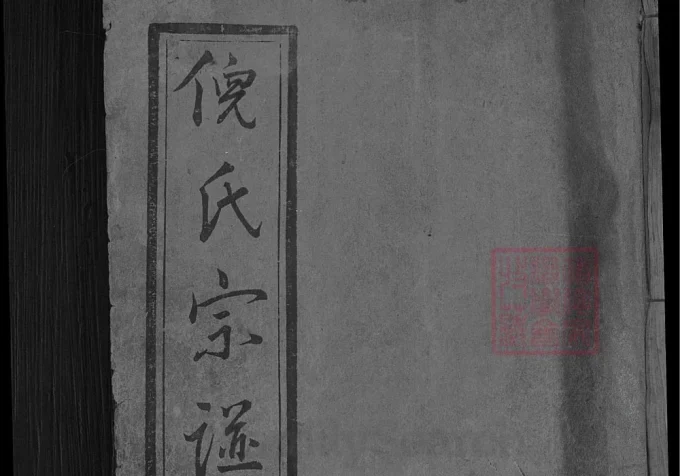 倪氏宗譜